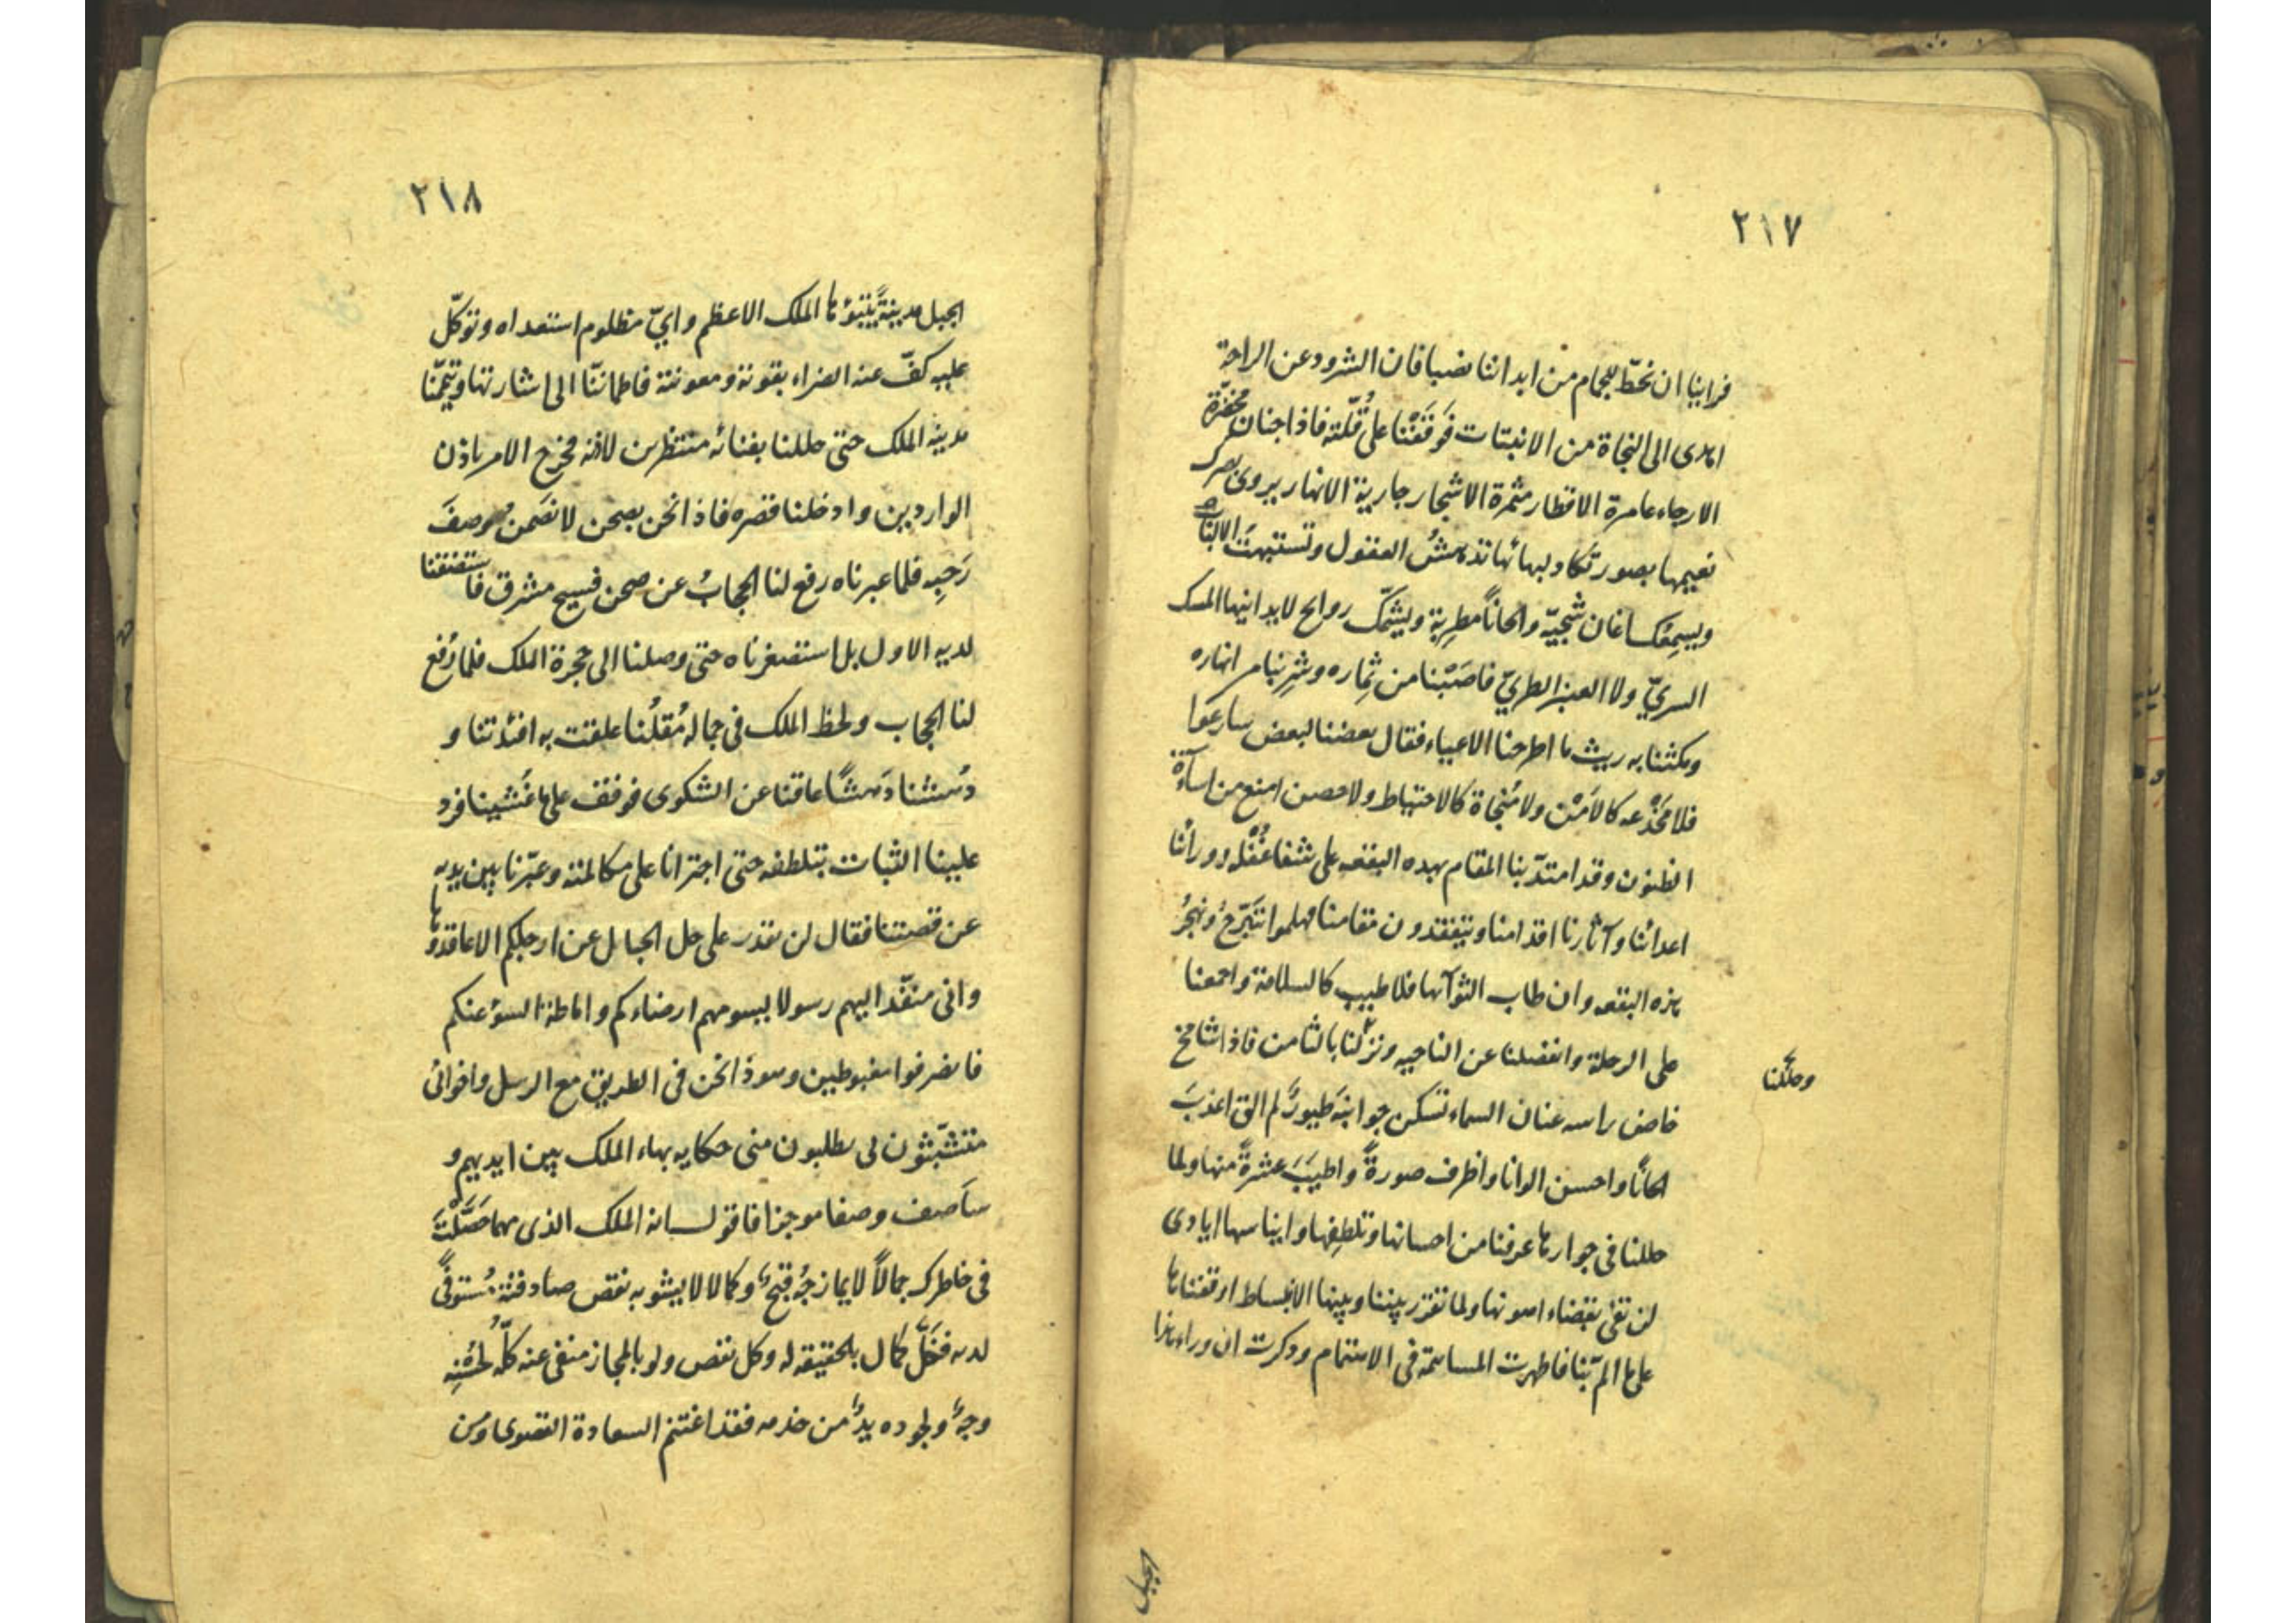 ٢١٧
فراينا ان نحطّ للجمام من ابداننا نصيبا فان الشرود عن الراحة
اهدى الى النجاة من الانبتات فَوَقَفْنَا على قُلّته فاذا جنان مخضرّة
الارجاء عامرة الاقطار مثمرة الاشجار جارية الانهار يروى بصرك
نعيمها بصور تكاد لبهائها تدهشُ العقول وتستبهتَ الالباب
ويسمِعُك اغان شجيّة والحاناً مطرِبة ويشمّك روايح لا يدانيها المسك
السريّ ولا العنبر الطريّ فاصَبْنا من ثِماره وشرِبنا من انهاره
ومكثنا به ريث ما اطرحنا الاعياء فقال بعضنا لبعض سارعوا
فلا مَخْدَعه كالاَمْن ولا مُنجاة كالاحتياط ولا حصن امنع من اساءة
الظنون وقد امتدّ بنا المقام بهده البقعه على شفا غُفْله وورائنا
اعدائنا وآثارنا اقدامنا ويتفقدون مقامنا فهلموا نتبرّحُ ونهجرُ
هذه البقعه وان طاب الثوآ بها فلا طيب كالسلامة واجمعنا
على الرحلة وانفصلنا عن الناحيه ونزلنا بالثامن فاذا شامخ
وحللنا
خاض راسه عنان السماء تسكن جوانبَهُ طيورٌ لم الق اعذبَ
الحاناً واحسن الوانا واظرف صورةً واطيبَ عشرةً منها ولما
حللنا فى جوارها عرفنا من احسانها وتلطِفها وايناسها ايادى
لن نفى بقضاء اهونها ولما تقرر بيننا وبينها الانبساط اوقفناها
على ما المّ بنا فاظهرت المساهمة فى الاهتمام وذكرت ان وراء هذا
الجبل
٢١٨
الجبل مدينةً يتبوّئها الملك الاعظم وايّ مظلوم استعداه وتوكّل
عليه كفّ عنه الضراء بقوته ومعونته فاطماننّا الى اشارتها وتيمّمنا
مدينه الملك حتى حللنا بفنائه منتظرين لاذنه فخرج الامر باذن
الواردين وادخلنا قصره فاذا نحن بصحن لا تضمن وصفَ
رَحبِه فلما عبرناه رفع لنا الحجابُ عن صحن فسيح مشرق فاستضقنا
لديه الاول بل استصغرناه حتى وصلنا الى حجرة الملك فلما رُفع
لنا الحجاب ولحظ الملك فى جماله مُقلُنا علقت به افئدتنا و
دُهِشنا دَهشاً عاقنا عن الشكوى فوقف على ما غَشينا فرد
علينا الثبات بتلطفه حتى اجترانا على مكالمته وعبّرنا بين يديه
عن قصتنا فقال لن يقدر على حل الحبايل عن ارجلكم الا عاقدوها
وانى منفّد اليهم رسولا ليسومهم ارضاءكم واماطة السوء عنكم
فانصرفوا مغبوطين وهو ذا نحن فى الطريق مع الرسل واخوانى
متشبّثون لى يطلبون منى حكايه بهاء الملك بين ايديهم و
ساَصف وصفا موجزا فاقول انه الملك الذى مهما حَصَّلْتَ
فى خاطرك جمالاً لا يمازجُهُ قبحٌ وكمالا لا يشوبه نقص صادفته مُستوفًى
لديه فكلّ كمال بالحقيقه له وكل نقص ولو بالمجاز منفى عنه كلّه لحُسْنِه
وجهٌ ولجوده يدٌ من خدمه فقد اغتنم السعادة القصوى ومن